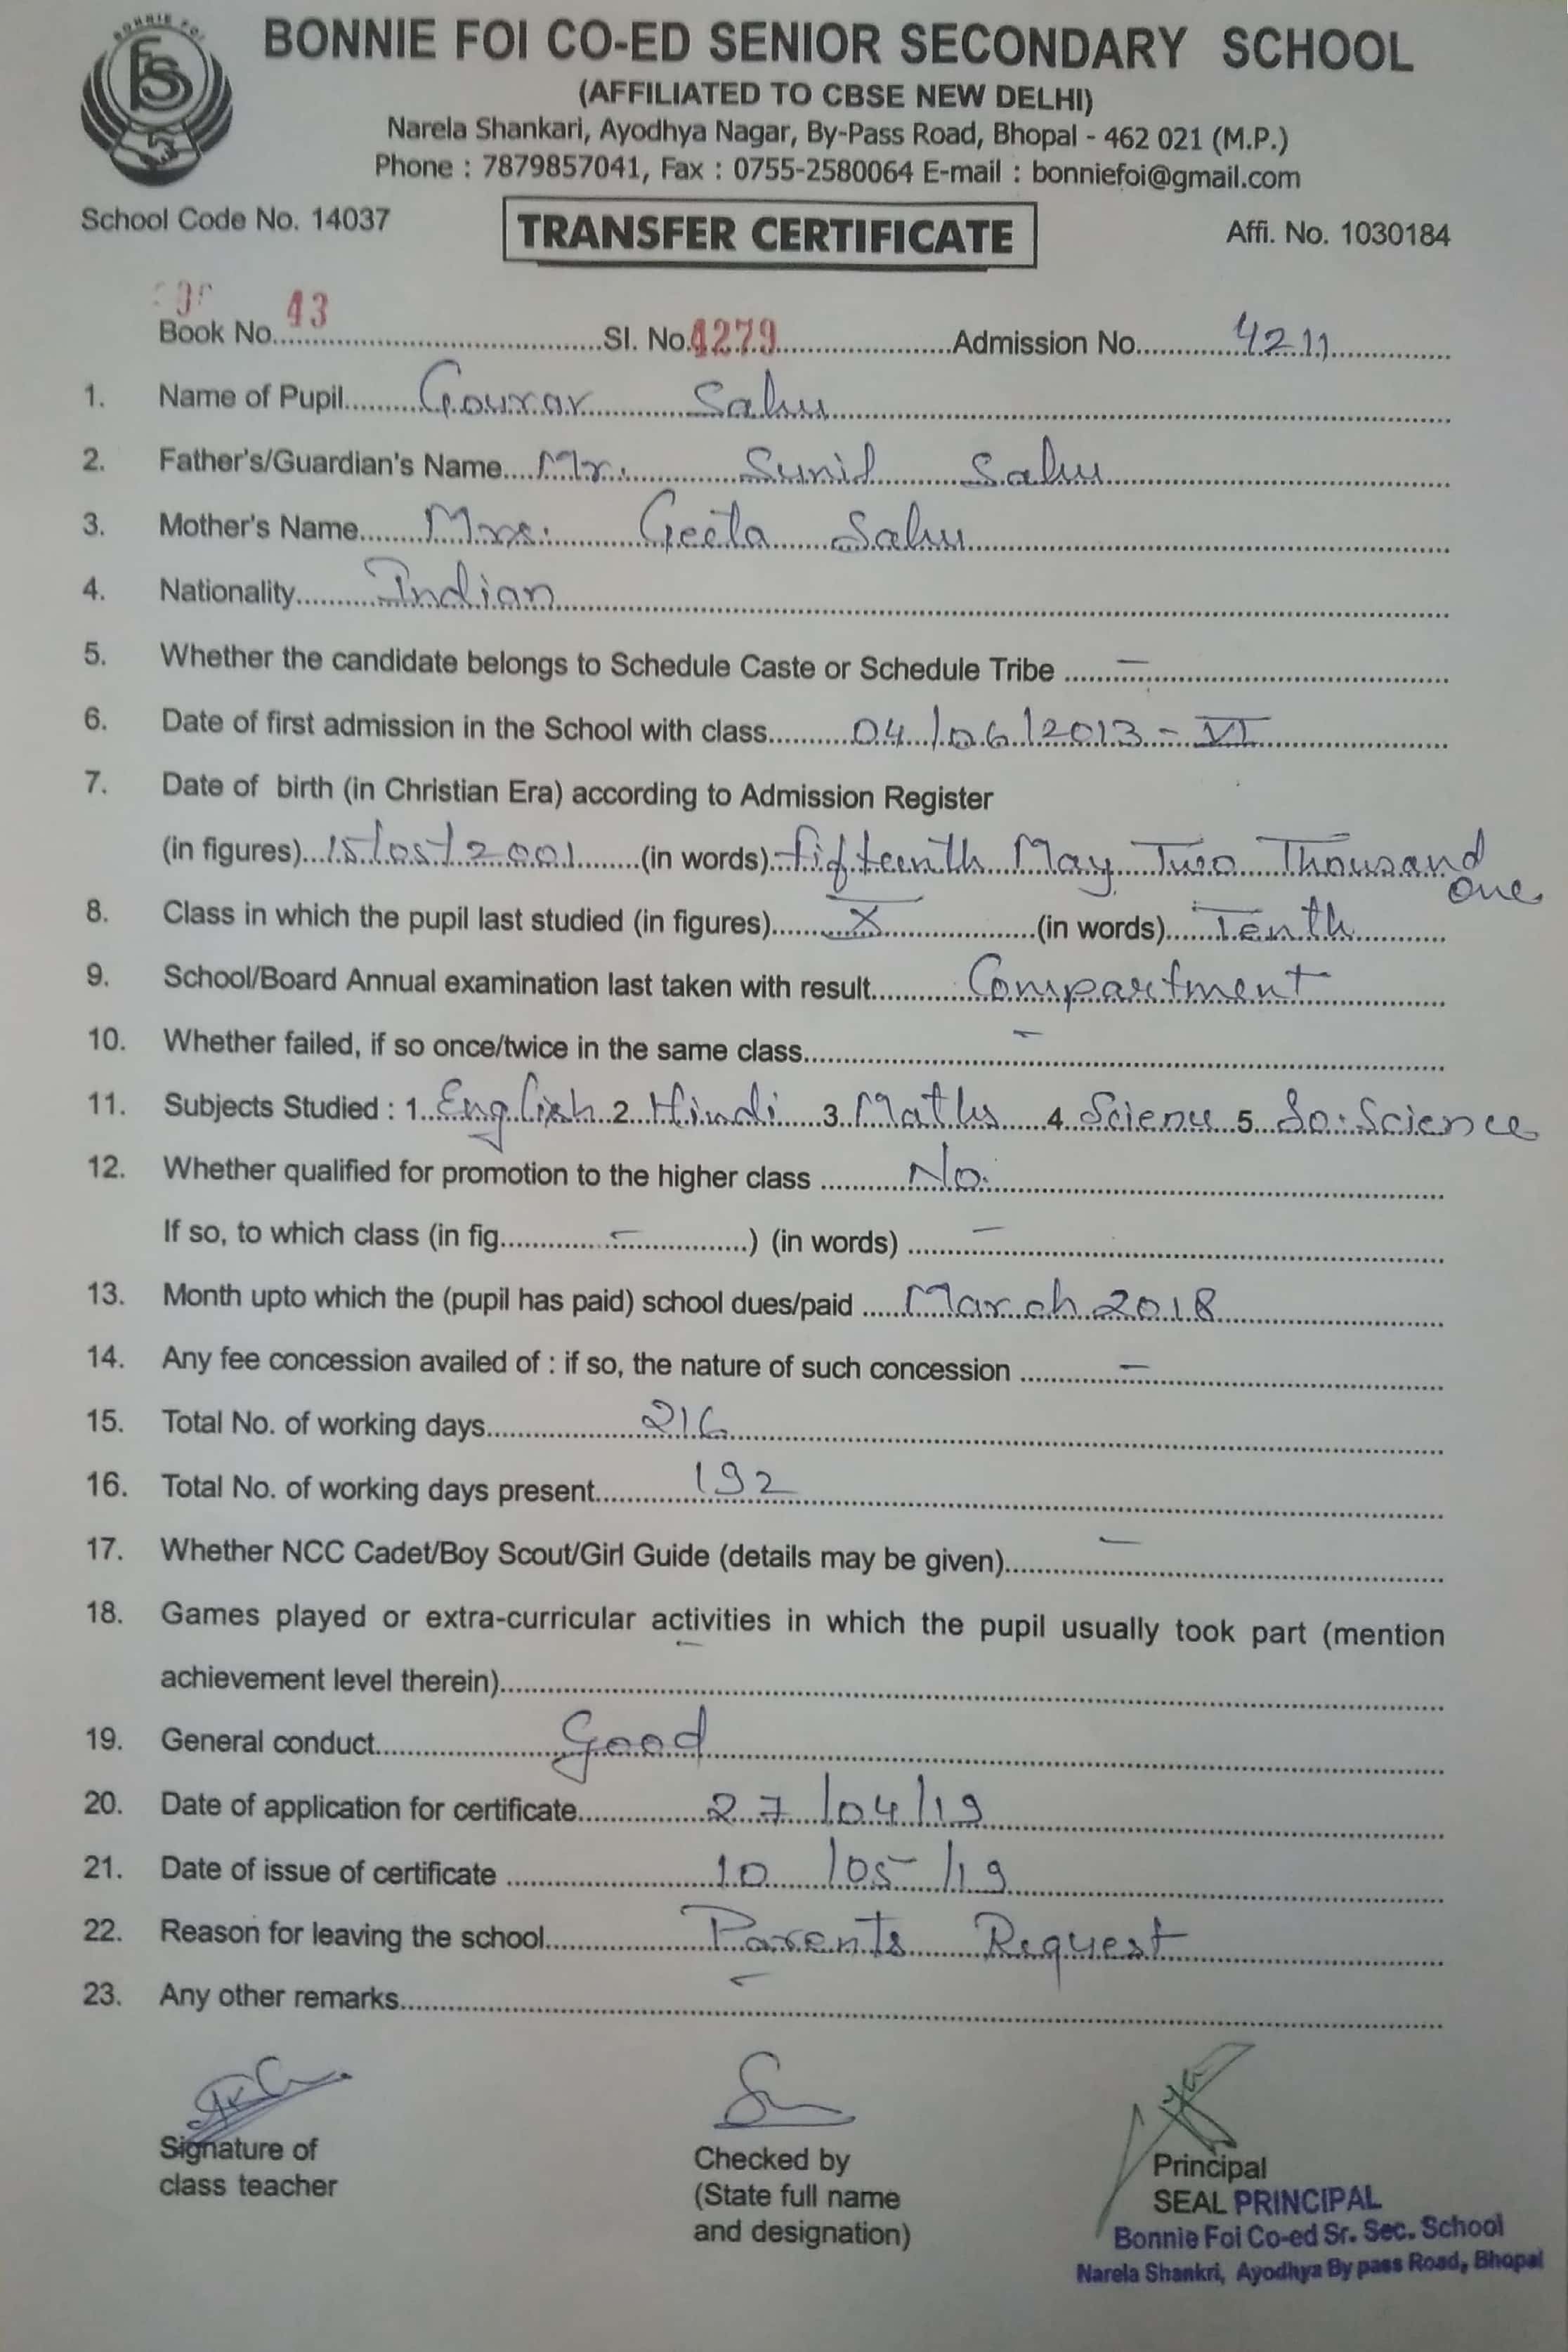 BONNIE FOI
BONNIE FOI CO-ED SENIOR SECONDARY SCHOOL
(AFFILIATED TO CBSE NEW DELHI)
Narela Shankari, Ayodhya Nagar, By-Pass Road, Bhopal - 462 021 (M.P.)
Phone : 7879857041, Fax : 0755-2580064 E-mail : bonniefoi@gmail.com
School Code No. 14037 TRANSFER CERTIFICATE Affi. No. 1030184
Book No. 43 Sl. No. 4279 Admission No. 4211
1. Name of Pupil Gourav Sahu
2. Father's/Guardian's Name Mr. Sunil Sahu
3. Mother's Name Mrs. Geeta Sahu
4. Nationality Indian
5. Whether the candidate belongs to Schedule Caste or Schedule Tribe –
6. Date of first admission in the School with class 04/06/2013 - VI
7. Date of birth (in Christian Era) according to Admission Register
(in figures) 15/05/2001 (in words) fifteenth May Two Thousand
one
8. Class in which the pupil last studied (in figures) X (in words) Tenth
9. School/Board Annual examination last taken with result Compartment
10. Whether failed, if so once/twice in the same class –
11. Subjects Studied : 1 English 2 Hindi 3 Maths 4 Science 5 So. Science
12. Whether qualified for promotion to the higher class No.
If so, to which class (in fig. – ) (in words) –
13. Month upto which the (pupil has paid) school dues/paid March 2018
14. Any fee concession availed of : if so, the nature of such concession –
15. Total No. of working days 216
16. Total No. of working days present 192
17. Whether NCC Cadet/Boy Scout/Girl Guide (details may be given) –
18. Games played or extra-curricular activities in which the pupil usually took part (mention
achievement level therein) –
19. General conduct Good
20. Date of application for certificate 27/04/19
21. Date of issue of certificate 10/05/19
22. Reason for leaving the school Parents Request
23. Any other remarks –
Signature of
class teacher
Checked by
(State full name
and designation)
Principal
SEAL PRINCIPAL
Bonnie Foi Co-ed Sr. Sec. School
Narela Shankri, Ayodhya By pass Road, Bhopal